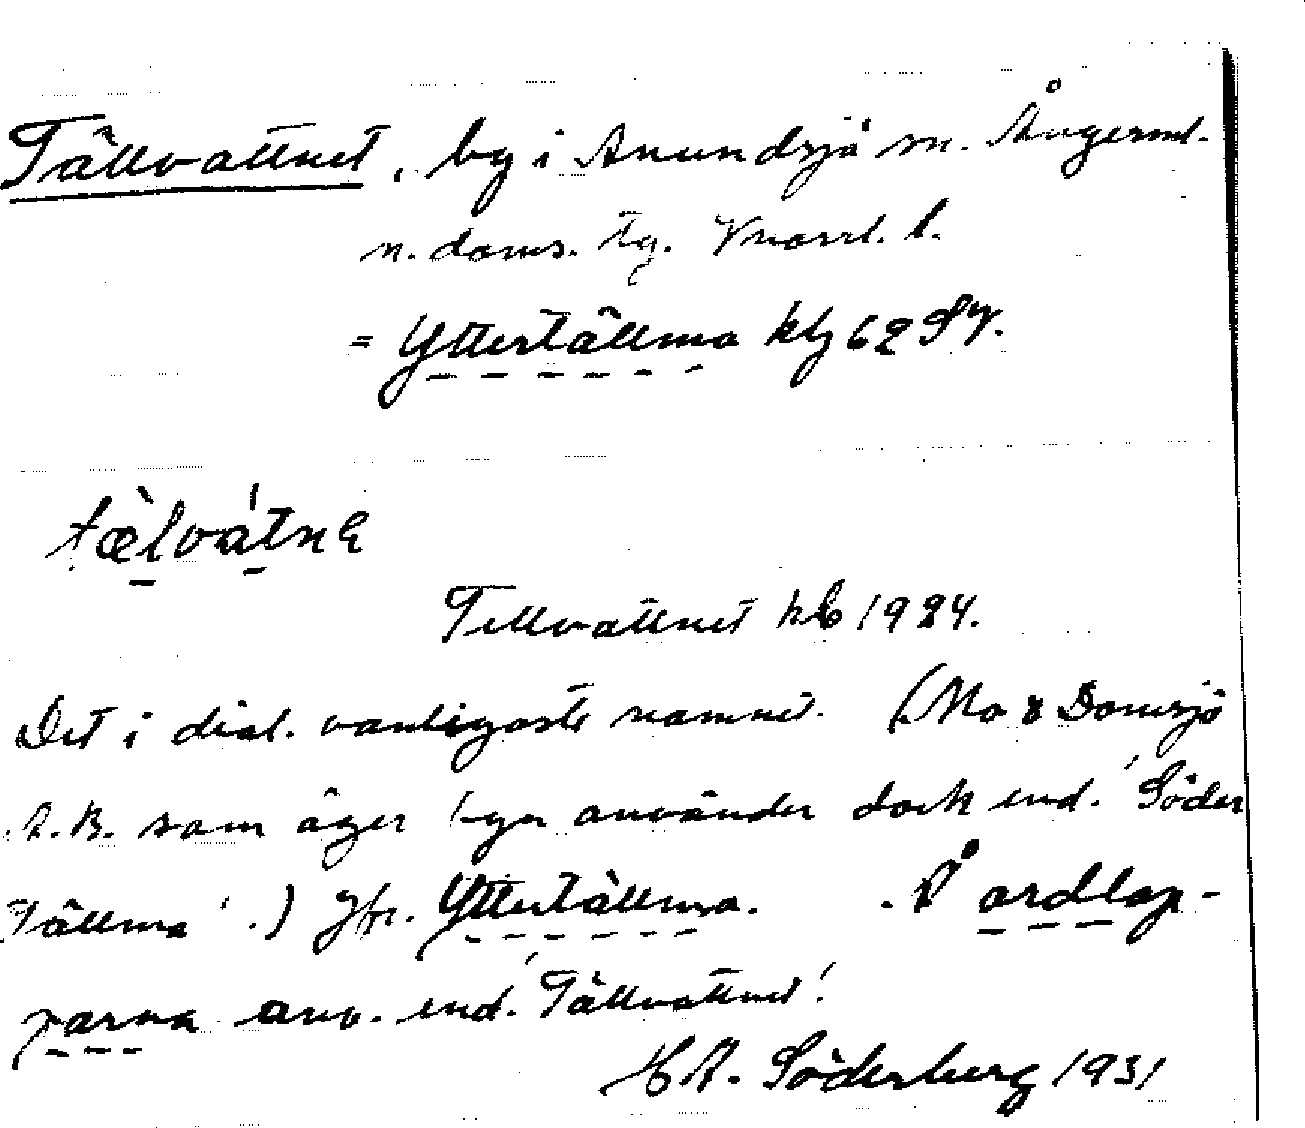 Tällvattnet, by i Anundsjö sn. Ångerml.
n. doms. tg. Vnorrl. l.
= Yttertällma kbl 62 SV.
tæ̀lvátnɛ
Tellvattnet kb 1924.
Det i dial. vanligaste namnet. (Mo & Domsjö
A.B. som äger byn använder dock end. 'Söder
Tällma'.) Jfr. Yttertällma. På ordlap-
parna anv. end. 'Tällvattnet'.
H A. Söderberg 1931